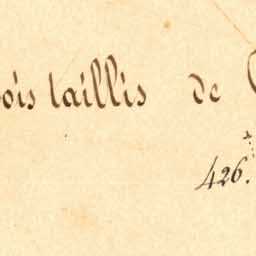 ois taillis de
426.